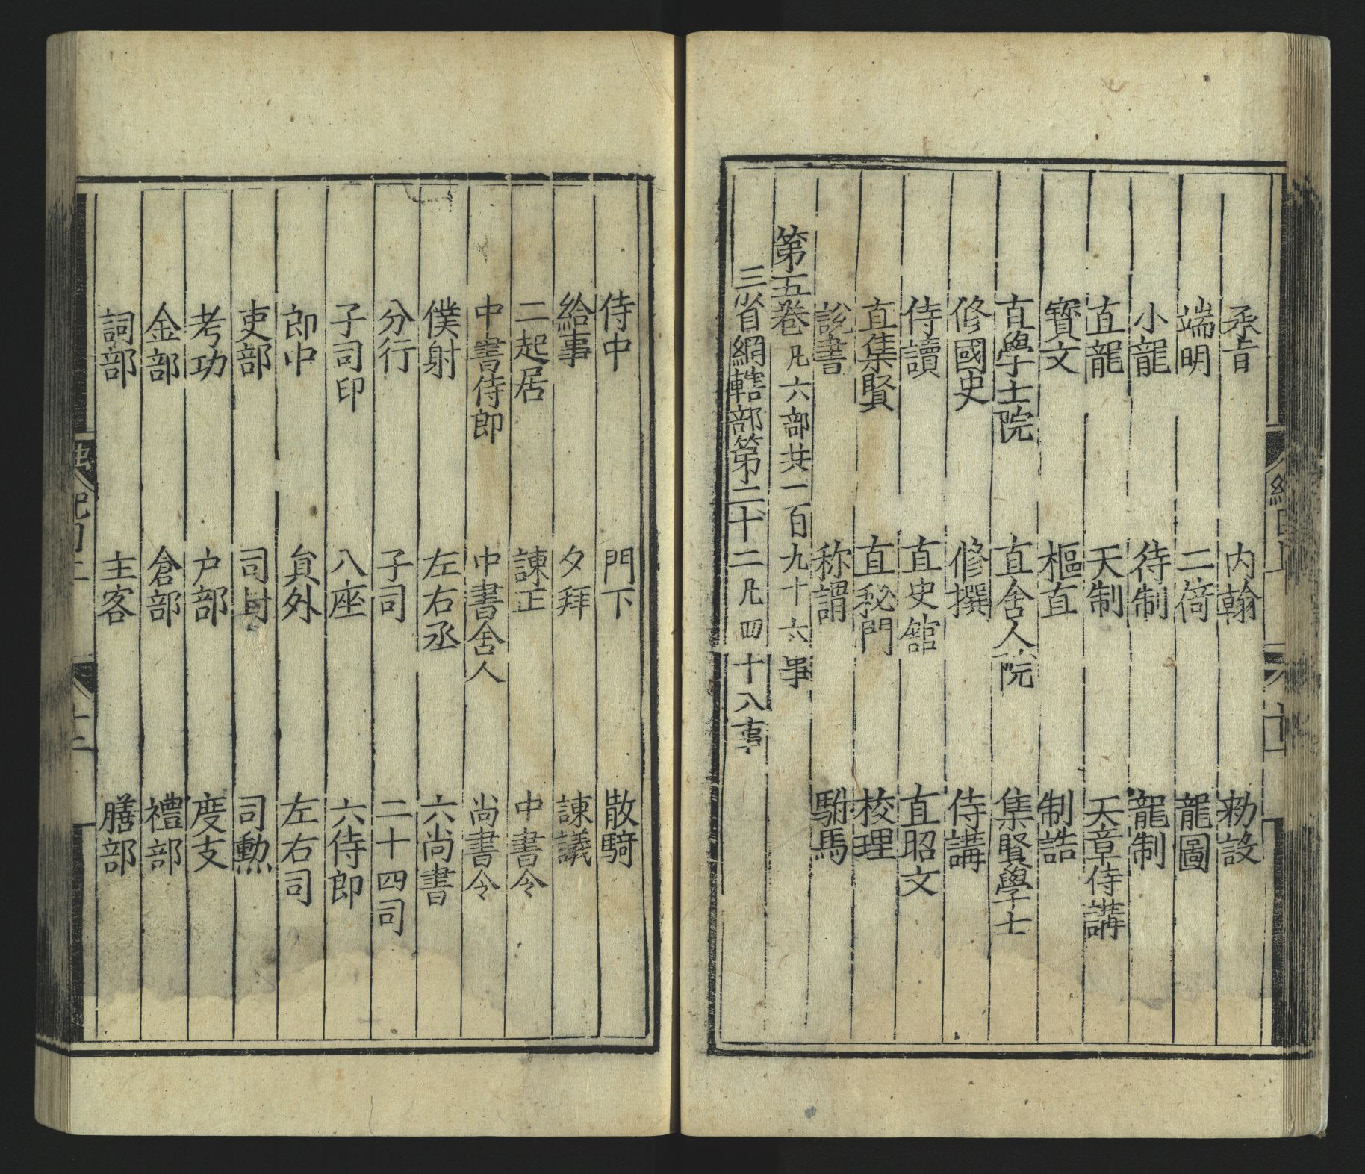 承旨　内翰　勅設
端明　二倚　龍圖
小龍　待制　龍制
直龍　天制　天章侍講
寶文　樞直　制誥
直學士院　直舍人院　集賢學士
修國史　修撰　侍講
侍讀　直史館　直昭文
直集賢　直秘門　校理
說書　称謂　駙馬
第五卷凡六部共一百九十六事
三省綱轄部第二十二凡四十八事
侍中　門下　散騎
給事　夕拜　諫議
二起居　諫正　中書令
中書侍郎　中書舍人　尚書令
僕射　左右丞　六尚書
分行　子司　二十四司
子司印　八座　六侍郎
郎中　負外　左右司
吏部　司封　司勲
考功　户部　度支
金部　倉部　禮部
詞部　主客　膳部